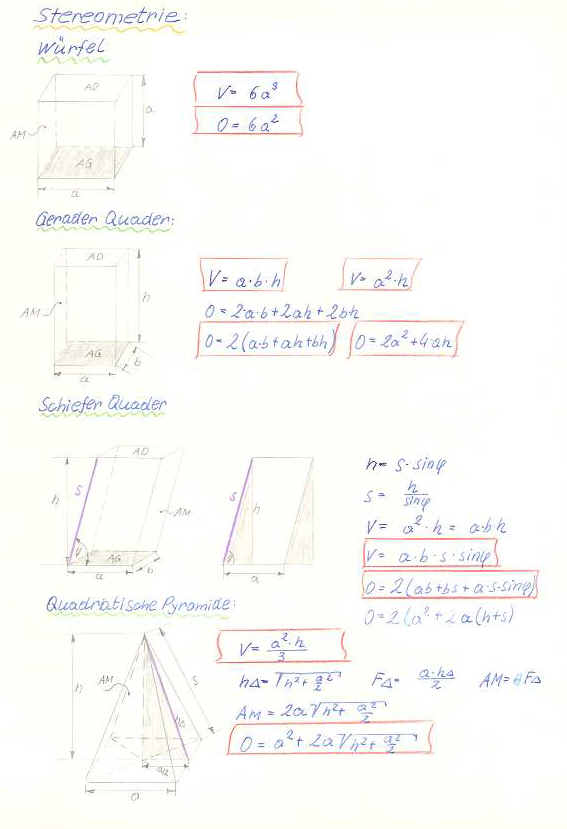 Stereometrie:
Würfel
AD
a
AM
AG
a
V= 6a³
O= 6a²
Gerader Quader:
AD
h
AM
AG
b
a
V= a·b·h
V= a²·h
O= 2·a·b+2ah+2bh
O= 2(a·b+ah+bh)
O= 2a²+4·ah
Schiefer Quader
AD
h
s
AM
φ
AG
b
a
s
h
φ
a
h= s·sinφ
s= h/sinφ
V= a²·h = a·b·h
V= a·b·s·sinφ
O= 2(ab+bs+a·s·sinφ)
O= 2(a²+2a(h+s)
Quadratische Pyramide:
h
AM
s
hΔ
a/2
a
V= a²·h/3
hΔ= √h²+a²/2
FΔ= a·hΔ/2
AM= FΔ
AM= 2a√h²+a²/2
O= a²+2a√h²+a²/2